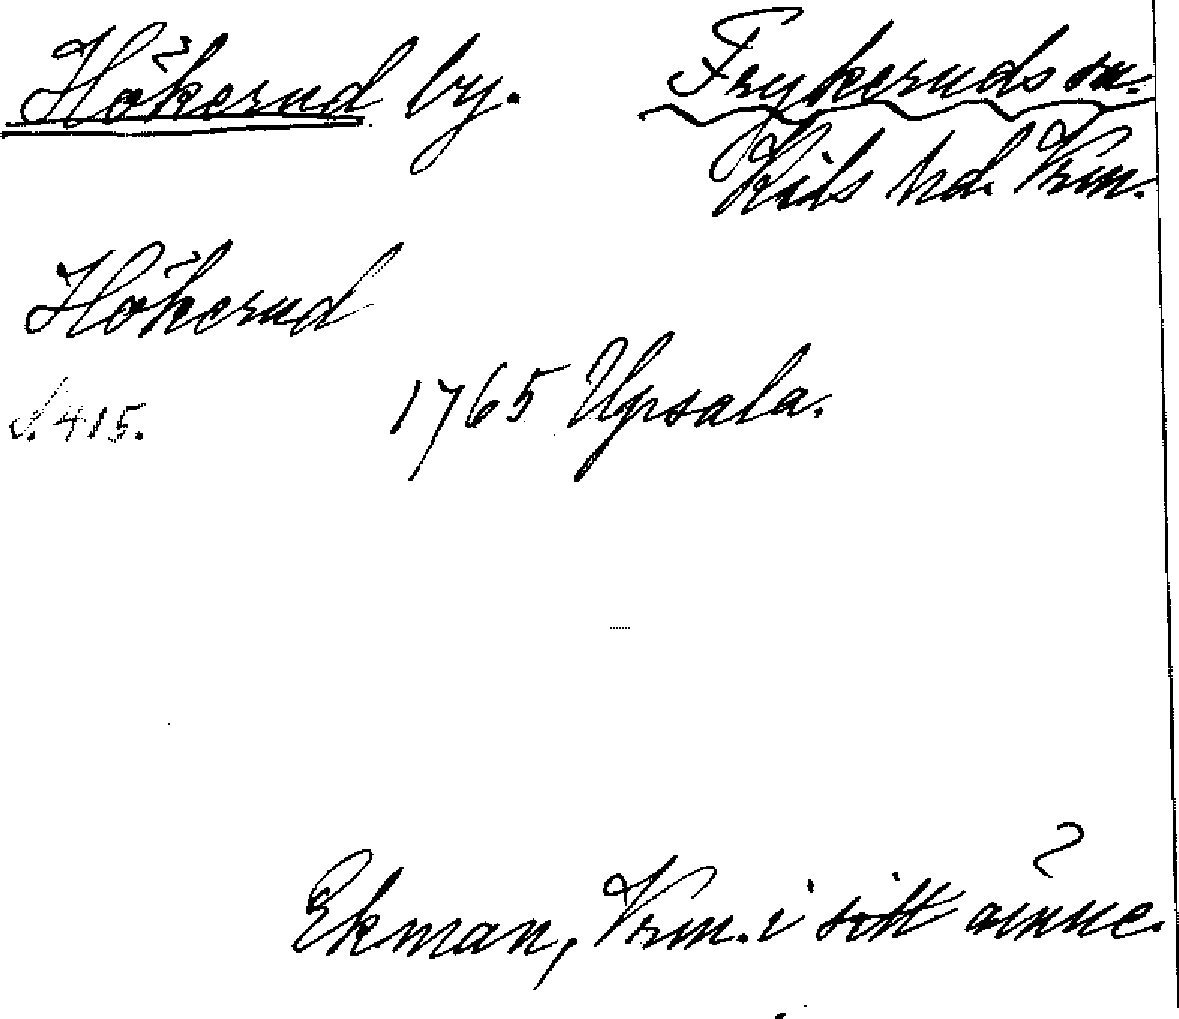 Hökerud by.
Frykeruds sn.
Kils hd. Vrm.
Hökerud
S. 415.
1765 Upsala.
Ekman, Vrm. i sitt ämne.